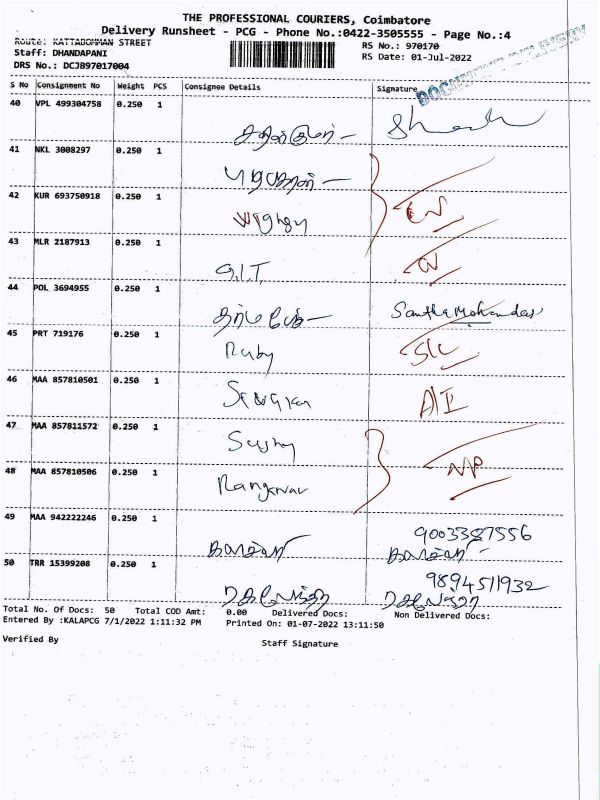 THE PROFESSIONAL COURIERS, Coimbatore
Delivery Runsheet - PCG - Phone No.:0422-3505555 - Page No.:4
Route: KATTABOMMAN STREET
Staff: DHANDAPANI
DRS No.: DCJB97017004
RS No.: 970170
RS Date: 01-Jul-2022
DOCUMENT DELIVERY
S No Consignment No Weight PCS Consignee Details Signature
40 VPL 499304758 0.250 1
41 NKL 3008297 0.250 1
42 KUR 693750918 0.250 1
43 MLR 2187913 0.250 1
G.I.T.
44 POL 3694955 0.250 1
Santha Mohandas
45 PRT 719176 0.250 1
Ruby
46 MAA 857810501 0.250 1
47 MAA 857811572 0.250 1
48 MAA 857810506 0.250 1
NP
49 MAA 942222246 0.250 1
9003387556
50 TRR 15399208 0.250 1
9894511932
Total No. Of Docs: 50 Total COD Amt: 0.00 Delivered Docs: Non Delivered Docs:
Entered By :KALAPCG 7/1/2022 1:11:32 PM Printed On: 01-07-2022 13:11:50
Verified By
Staff Signature